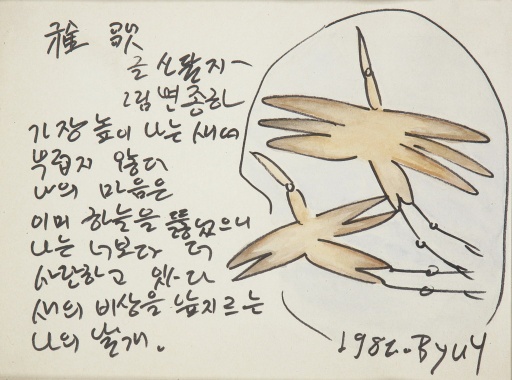 雅 歌
글 신달자
그림 변종하
가장 높이 나는 새여
부럽지 않다
나의 마음은
이미 하늘을 뚫었으니
나는 너보다 더
사랑하고 있다
새의 비상을 앞지르는
나의 날개.
1982. Byun